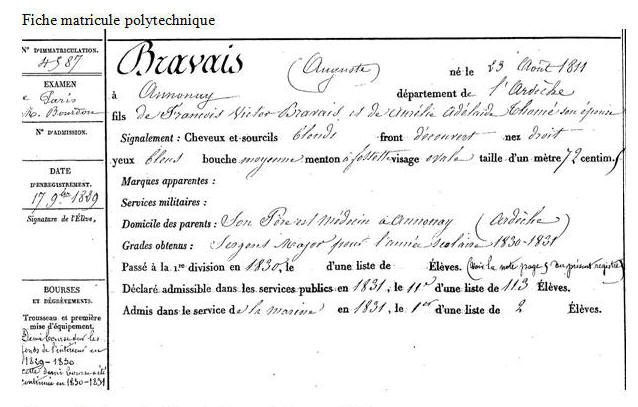 Fiche matricule polytechnique
N° D'IMMATRICULATION.
4587
EXAMEN
de Paris
M. Bourdon
N° D'ADMISSION.
DATE
D'ENREGISTREMENT.
17 9bre 1829
Signature de l'Élève,
BOURSES
ET DÉGRÈVEMENTS.
Trousseau et première
mise d'équipement.
Demi bourse sur les
fonds de l'intérieur en
1829-1830
cette demi bourse a été
continuée en 1830-1831
Bravais (Auguste) né le 23 Août 1811
à Annonay département de l'Ardèche
fils de François Victor Bravais, et de Aurélie Adélaïde Thomé son épouse
Signalement : Cheveux et sourcils blonds front découvert nez droit
yeux bleus bouche moyenne menton à fossette visage ovale taille d'un mètre 72 centim.s
Marques apparentes :
Services militaires :
Domicile des parents : Son Père est médecin à Annonay (Ardèche)
Grades obtenus : Sergent Major pour l'année scolaire 1830-1831
Passé à la 1re division en 1830, le d'une liste de Élèves. (Voir la note page 5 du présent registre)
Déclaré admissible dans les services publics en 1831, le 11e d'une liste de 113 Élèves.
Admis dans le service de la marine en 1831, le 1er d'une liste de 2 Élèves.